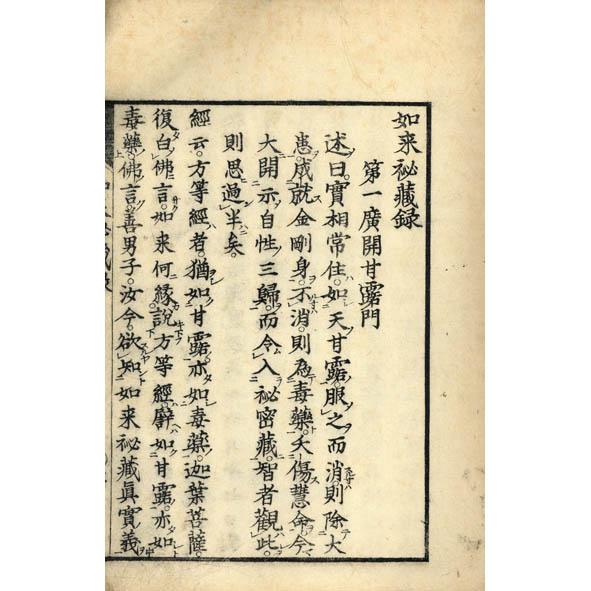 如来祕藏録
第一廣開甘露門
述曰。實相常住。如天甘露。服之而消則除大
患。成就金剛身。不消。則為毒藥。夭傷慧命。今
大開示自性三歸。而令入祕密藏。智者觀此。
則思過半矣。
經云。方等經者。猶如甘露。亦如毒藥。迦葉菩薩。
復白佛言。如来何縁。說方等經。譬如甘露。亦如
毒藥。佛言。善男子。汝今欲知如来祕藏眞實義